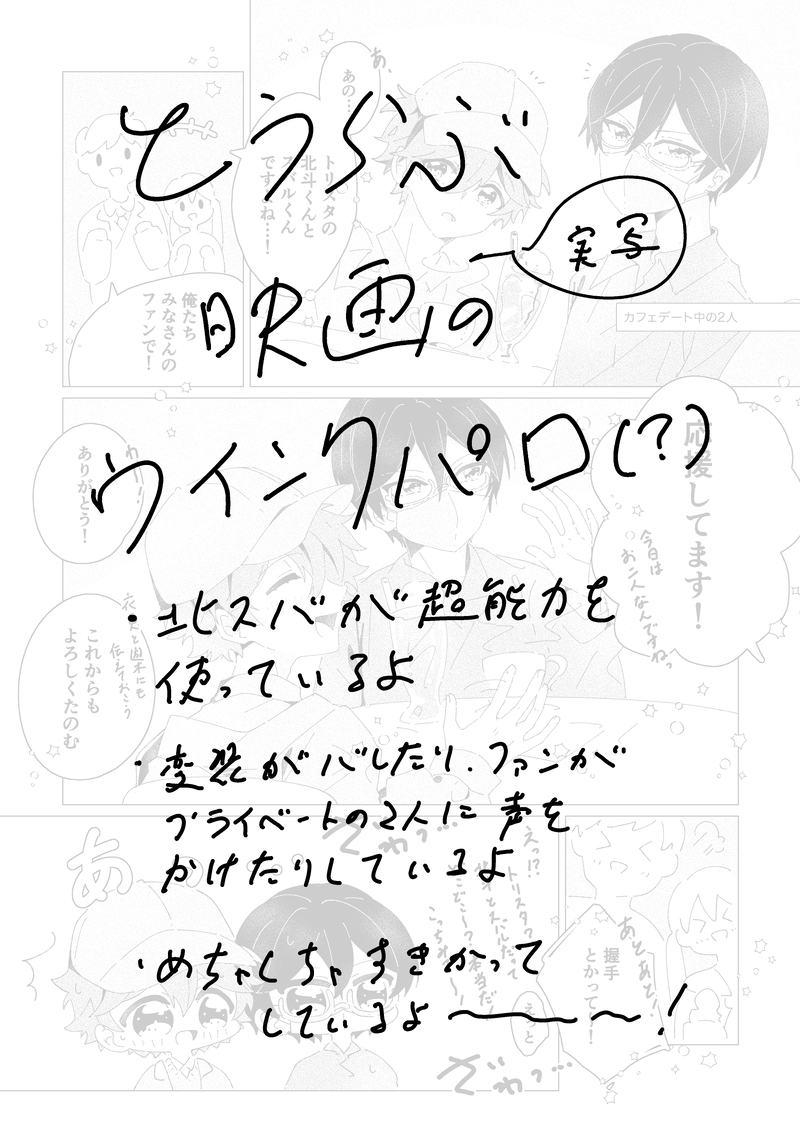 とうらぶ
映画の
実写
ウインクパロ(?)
・北スバが超能力を
使っているよ
・変装がバレたり、ファンが
プライベートの2人に声を
かけたりしているよ
・めちゃくちゃすきかって
しているよ〜〜〜!
あ、
あの…
トリスタの
北斗くんと
スバルくん
ですよね…!
俺たち
みなさんの
ファンで!
カフェデート中の2人
応援してます!
今日は
お二人なんですねっ
わー!
ありがとう!
これからも
よろしくたのむ
衣更と遊木にも
伝えておこう
ざわっ…
あ
えっ!?
トリスタ?
こっち
あとあと!
握手
とかって…!
えっと
ざわっ…